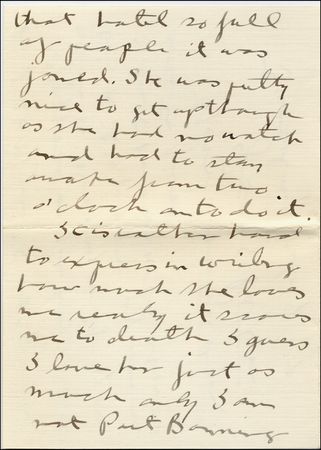 that hotel so full
of people it was
joined. She was pretty
nice to get up though
as she had no watch
and had to stay
awake from two
o'clock on to do it.
It is rather hard
to express in writing
how much she loves
me really it scares
me to death I guess
I love her just as
much only I am
not Pat Banning